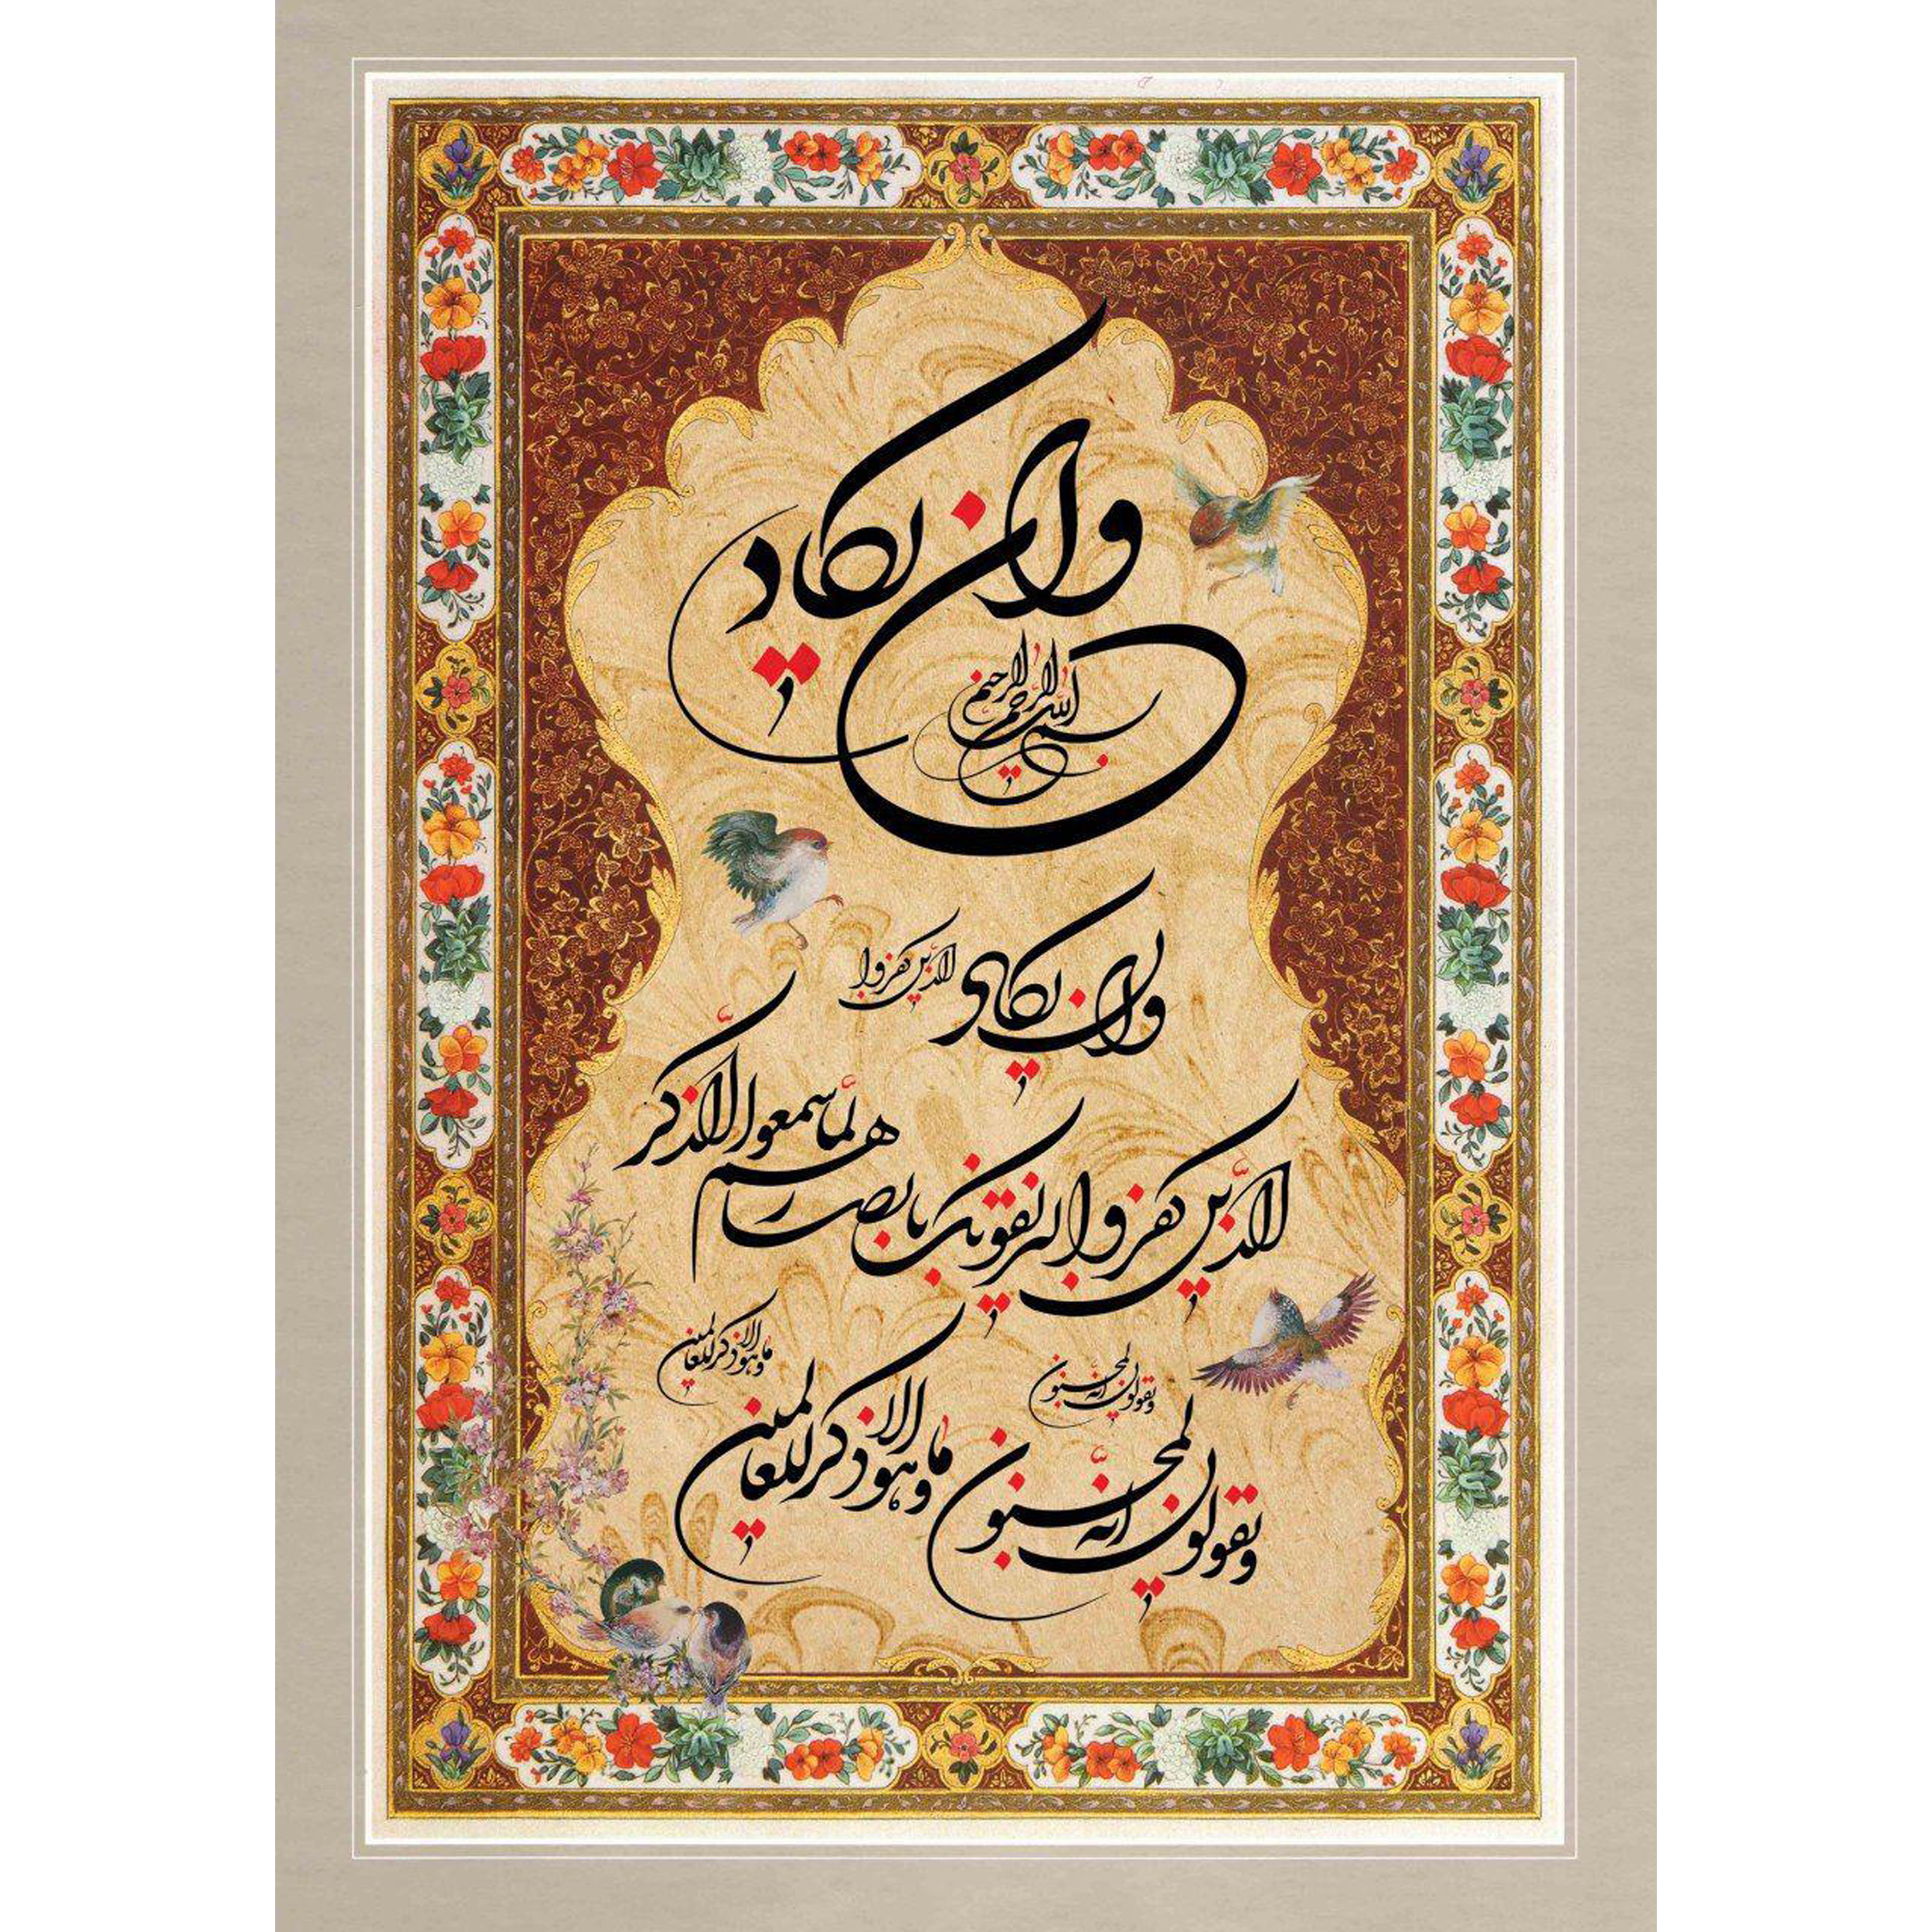 وان یکاد
بسم الله الرحمن الرحیم
وان یکاد الذین کفروا
الذین کفروا لیزلقونک بابصارهم لما سمعوا الذکر
ویقولون انه لمجنون
وما هو الا ذکر للعالمین
ویقولون انه لمجنون وما هو الا ذکر للعالمین